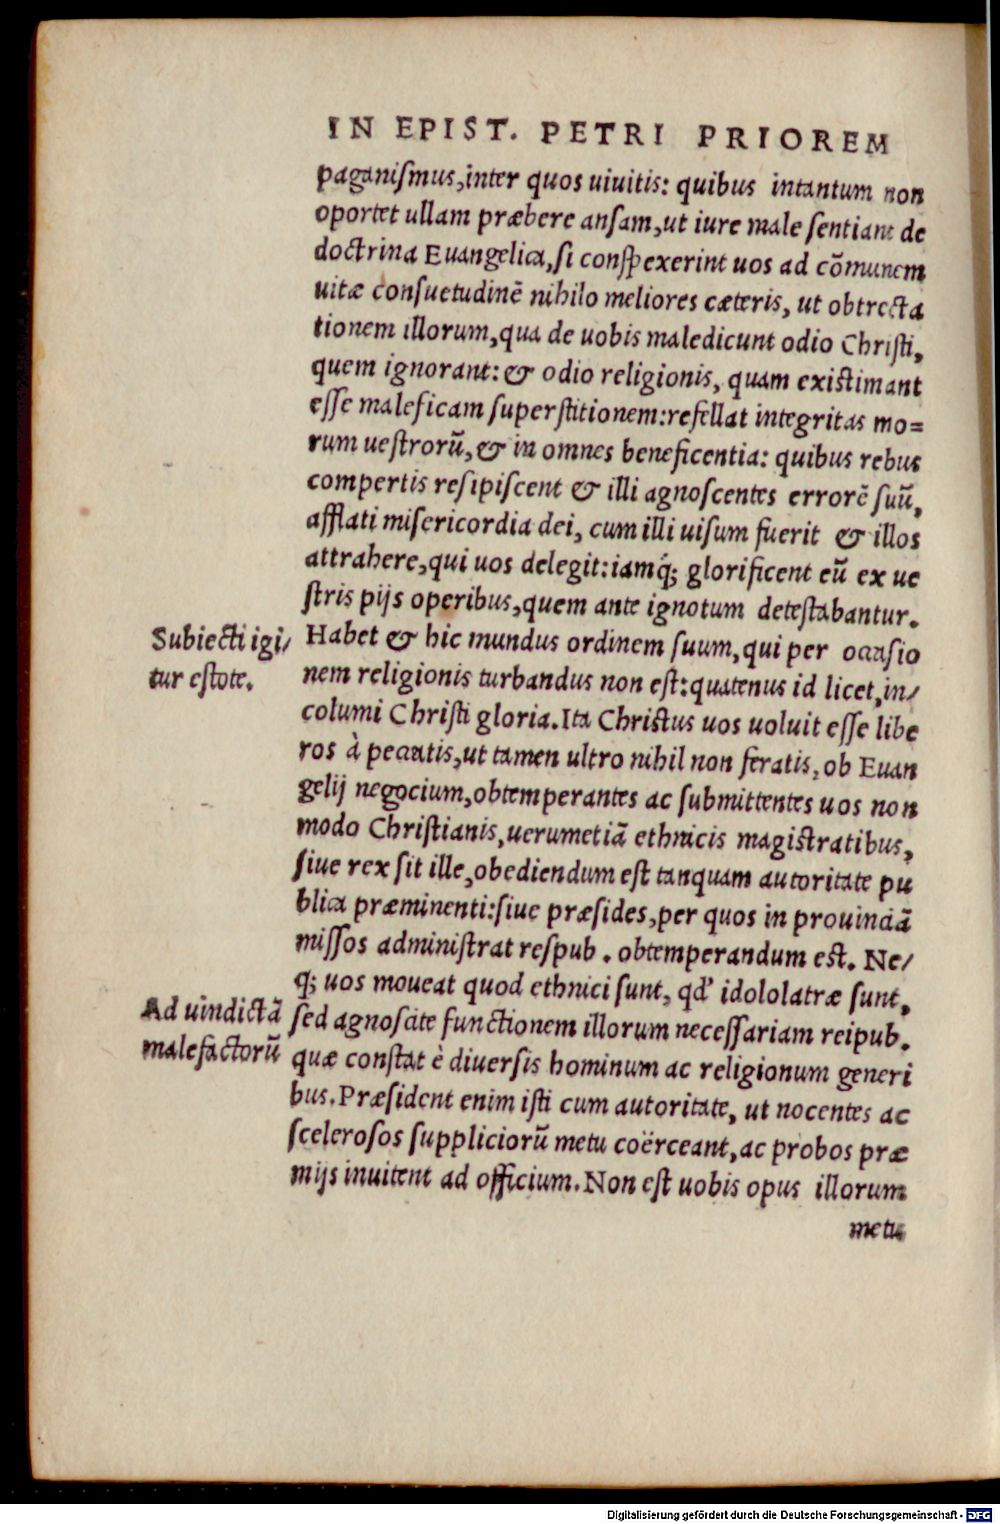 IN EPIST. PETRI PRIOREM
paganiſmus, inter quos uiuitis: quibus intantum non
oportet ullam præbere anſam, ut iure male ſentiant de
doctrina Euangelica, ſi conſpexerint uos ad cōmunem
uitæ conſuetudinē nihilo meliores cæteris, ut obtrecta
tionem illorum, qua de uobis maledicunt odio Chriſti,
quem ignorant: & odio religionis, quam existimant
eſſe maleficam ſuperſtitionem: refellat integritas mo=
rum ueſtrorū, & in omnes beneficentia: quibus rebus
compertis reſipiſcent & illi agnoſcentes errorē ſuū,
afflati miſericordia dei, cum illi uiſum fuerit & illos
attrahere, qui uos delegit: iamq́; glorificent eū ex ue
ſtris pijs operibus, quem ante ignotum deteſtabantur.
Subiecti igi/
tur eſtote.
Habet & hic mundus ordinem ſuum, qui per occaſio
nem religionis turbandus non eſt: quatenus id licet, in/
columi Chriſti gloria. Ita Christus uos uoluit eſſe libe
ros à peccatis, ut tamen ultro nihil non feratis, ob Euan
gelij negocium, obtemperantes ac ſubmittentes uos non
modo Chriſtianis, uerumetiā ethnicis magistratibus,
ſiue rex ſit ille, obediendum eſt tanquam autoritate pu
blica præminenti: ſiue præſides, per quos in prouinciā
miſſos adminiſtrat reſpub. obtemperandum eſt. Ne/
q; uos moueat quod ethnici ſunt, qd' idololatræ ſunt,
Ad uindictā
malefactorū
ſed agnoſcite functionem illorum neceſſariam reipub.
quæ conſtat è diuerſis hominum ac religionum generi
bus. Præſident enim iſti cum autoritate, ut nocentes ac
ſceleroſos ſuppliciorū metu coërceant, ac probos præ
mijs inuitent ad officium. Non eſt uobis opus illorum
metu
Digitalisierung gefördert durch die Deutsche Forschungsgemeinschaft - DFG